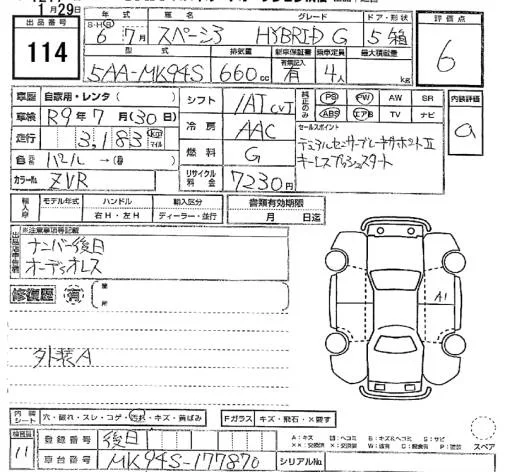 1月29日
出品番号
114
年式 車名 グレード ドア・形状
S・H R 6年 7月 スペーシア HYBRID G 5 箱
型式 排気量 新車保証書 乗車定員 最大積載量
有無記入
5AA-MK94S 660cc 有 4人 kg
評価点
6
車歴 自家用・レンタ( )
車検 R9年7月(30日)
走行 3,183 km マイル
色 パール →( )
カラーNo. ZVR
シフト IAT CVT
冷房 AAC
燃料 G
リサイクル料金 7230円
純正のみ PS PW AW SR
ABS エアB TV ナビ
セールスポイント
デュアルセンサーブレーキサポートⅡ
キーレスプッシュスタート
内装評価
a
輸入車 モデル年式 ハンドル 輸入区分
年 右H・左H ディーラー・並行
書類有効期限
月 日迄
※注意事項等記載
ナンバー後日
オーディオレス
修復歴 有 箇所
外装A
A1
内装シート 穴・破れ・スレ・コゲ・汚れ・キズ・黄ばみ
Fガラス キズ・飛石・×要す
スペア
検査員 11
登録番号 後日
車台番号 MK94S-177870
シリアルNo.